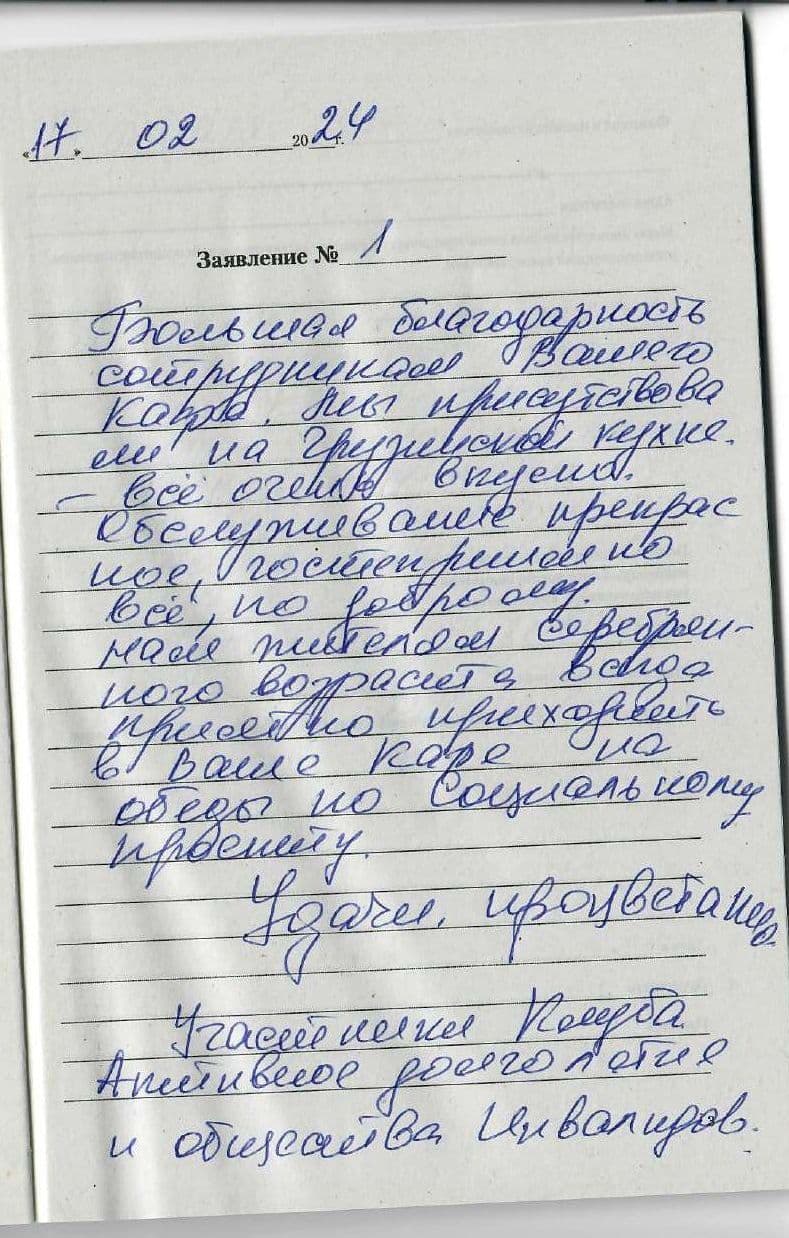 «17» 02 2024 г.
Заявление № 1
Большая благодарность
сотрудникам Вашего
Кафе. Мы присутствова
ли на Грузинской кухне.
– всё очень вкусно.
Обслуживание прекрас
ное, гостеприимно
всё, по доброму.
нам жителям серебрян-
ного возраста всегда
приятно приходить
в Ваше кафе на
обеды по Социальному
проекту.
Удачи, процветания.
Участники Клуба
Активное долголетие
и общества Инвалидов.